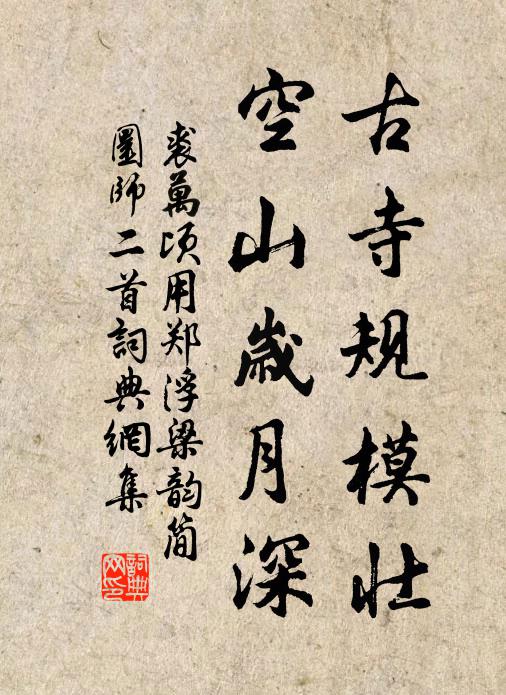 古寺規模壯
空山歲月深
裘萬頃用郑浮梁韵简
圖師二首詞典網集
詞典網印